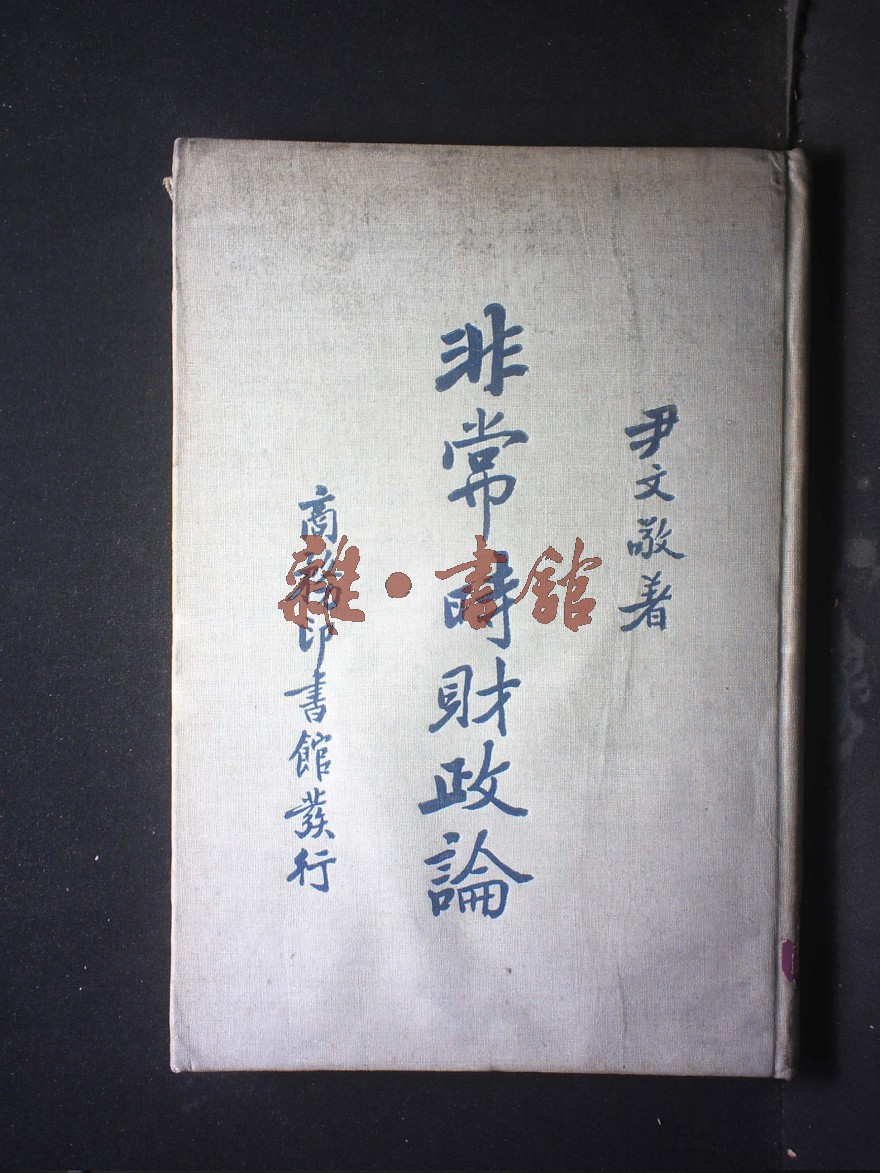 尹文敬著
非常時財政論
商務印書館發行
雜·書館